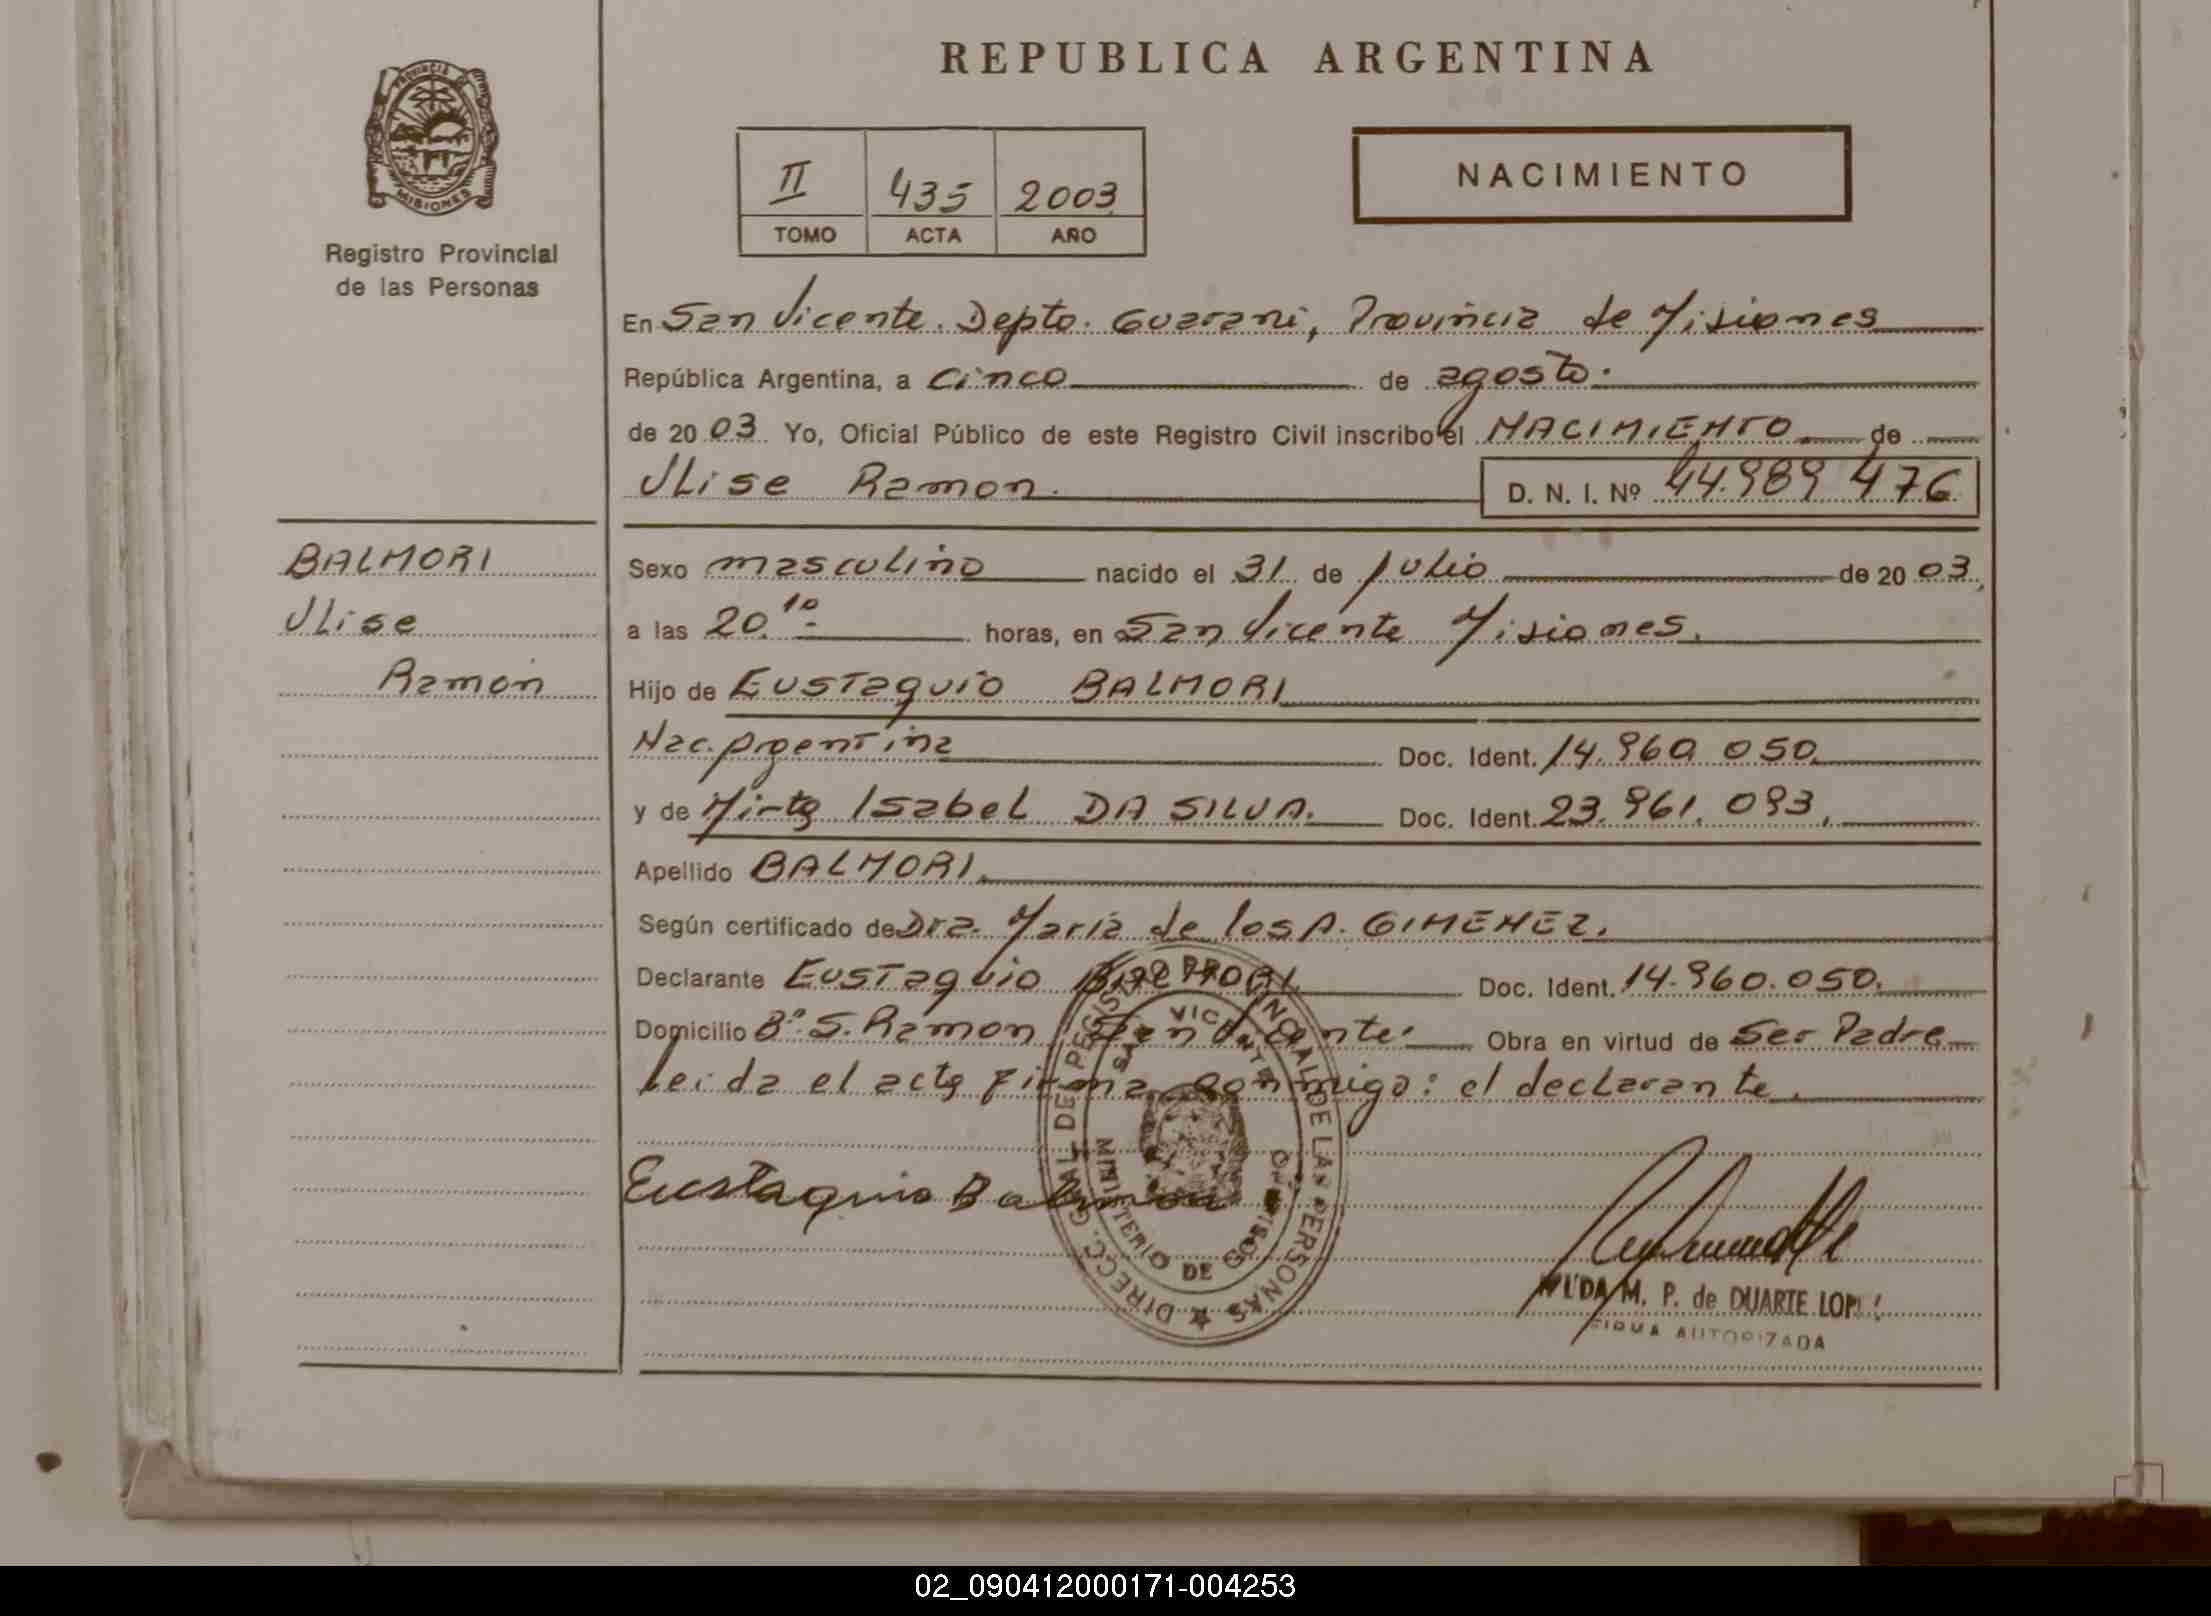 REPUBLICA ARGENTINA
PROVINCIA DE MISIONES
Registro Provincial
de las Personas
II 435 2003
TOMO ACTA AÑO
NACIMIENTO
En San Vicente. Depto. Guarani, Provincia de Misiones
República Argentina, a cinco de agosto.
de 2003 Yo, Oficial Público de este Registro Civil inscribo el NACIMIENTO de
Ulise Ramon. D. N. I. Nº 44.989 476
BALMORI
Ulise
Ramon
Sexo masculino nacido el 31 de julio de 2003,
a las 20.10 horas, en San Vicente Misiones.
Hijo de Eustaquio BALMORI
Nac. Argentina Doc. Ident. 14.960 050
y de Mirta Isabel DA SILVA. Doc. Ident. 23.961.093,
Apellido BALMORI.
Según certificado de Dra. María de los A. GIMENEZ.
Declarante Eustaquio BALMORI Doc. Ident. 14.960.050.
Domicilio Bº. S. Ramon San Vicente. Obra en virtud de Ser Padre
Leida el acta firma conmigo: el declarante.
Eustaquio Balmori
DIRECC. GRAL. DE REGISTRO PROVINCIAL DE LAS PERSONAS
SAN VICENTE
MINISTERIO DE GOB.
M. P. de DUARTE
FIRMA AUTORIZADA
02_090412000171-004253